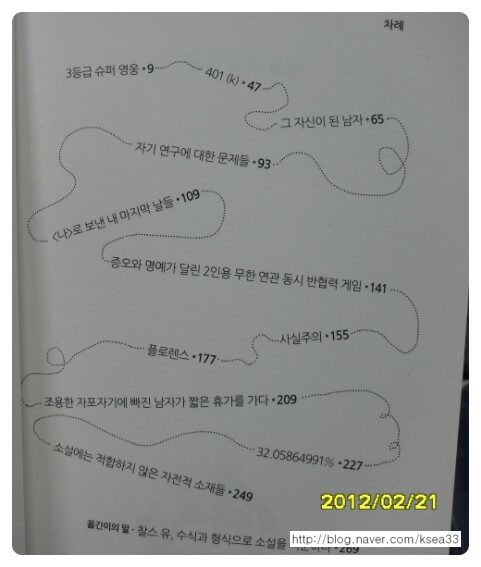 차례
3등급 슈퍼 영웅 • 9
401 (k) • 47
그 자신이 된 남자 • 65
자기 연구에 대한 문제들 • 93
<나>로 보낸 내 마지막 날들 • 109
증오와 명예가 달린 2인용 무한 연관 동시 반협력 게임 • 141
사실주의 • 155
플로렌스 • 177
조용한 자포자기에 빠진 남자가 짧은 휴가를 가다 • 209
32.05864991% • 227
소설에는 적합하지 않은 자전적 소재들 • 249
옮긴이의 말 - 찰스 유, 수식과 형식으로 소설을 • 269
2012/02/21
http://blog.naver.com/ksea33